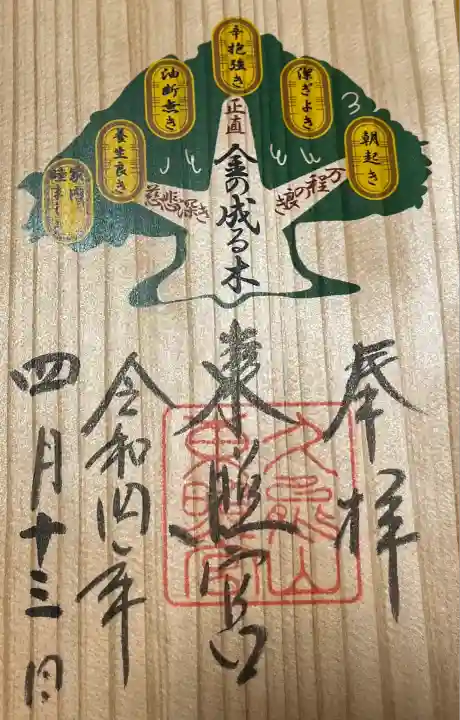 朝起き
潔ぎよき
辛抱強き
油断無き
養生良き
家内睦事
万程の浪き
正直
慈悲深き
金の成る木
奉拝
東照宮
久能山
東照宮
令和四年
四月十三日